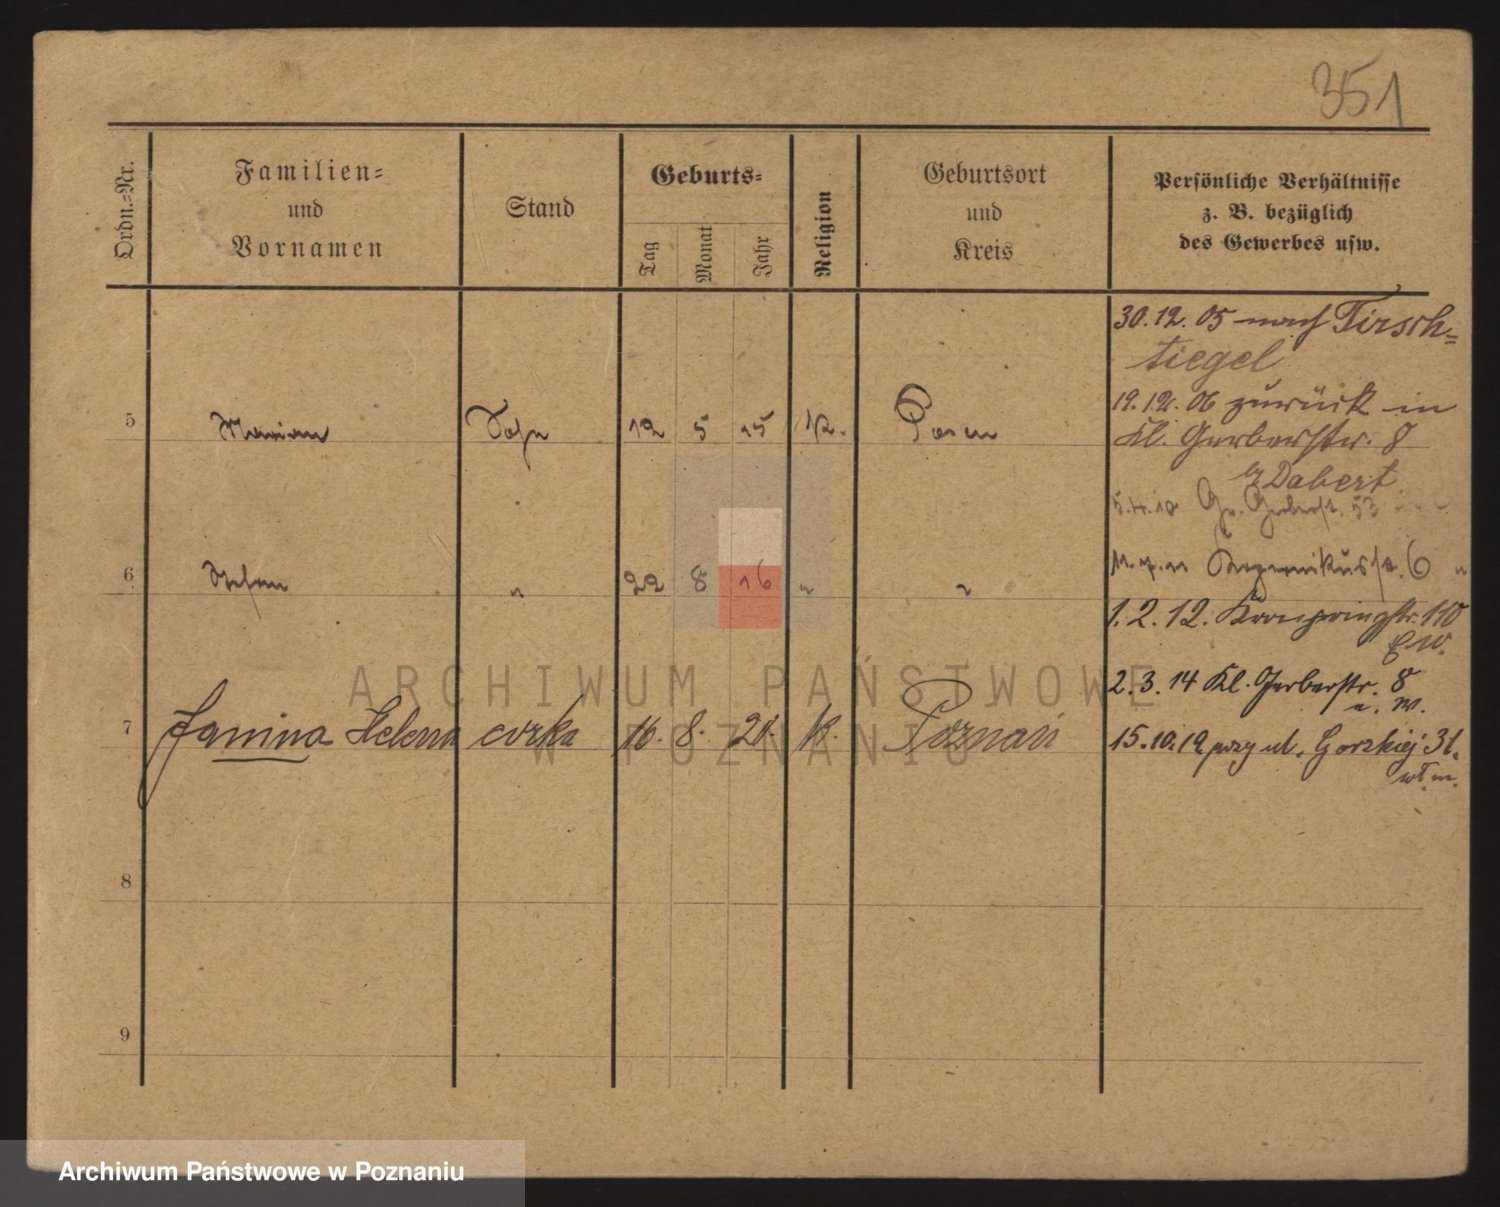 351
Ordn.-Nr.
Familien-
und
Vornamen
Stand
Geburts-
Tag
Monat
Jahr
Religion
Geburtsort
und
Kreis
Persönliche Verhältnisse
z. B. bezüglich
des Gewerbes usw.
30.12.05 nach Tirsch-
tiegel
19.12.06 zurück in
5 Marian Sohn 12 5 15 K. Posen
Kl. Gerberstr. 8
by Dabert
5.4.10 Gr. Gerberstr. 53
6 Stefan " 22 8 16 " "
Kopernikusstr. 6 "
1.2.12. Kronprinzstr. 110
2.3.14 Kl. Gerberstr. 8
u. W.
7 Janina Helena corka 16. 8. 20. K. Poznań
15.10.19 przy ul. Gorzkiej 31.
wł. m.
8
9
ARCHIWUM PAŃSTWOWE
W POZNANIU
Archiwum Państwowe w Poznaniu